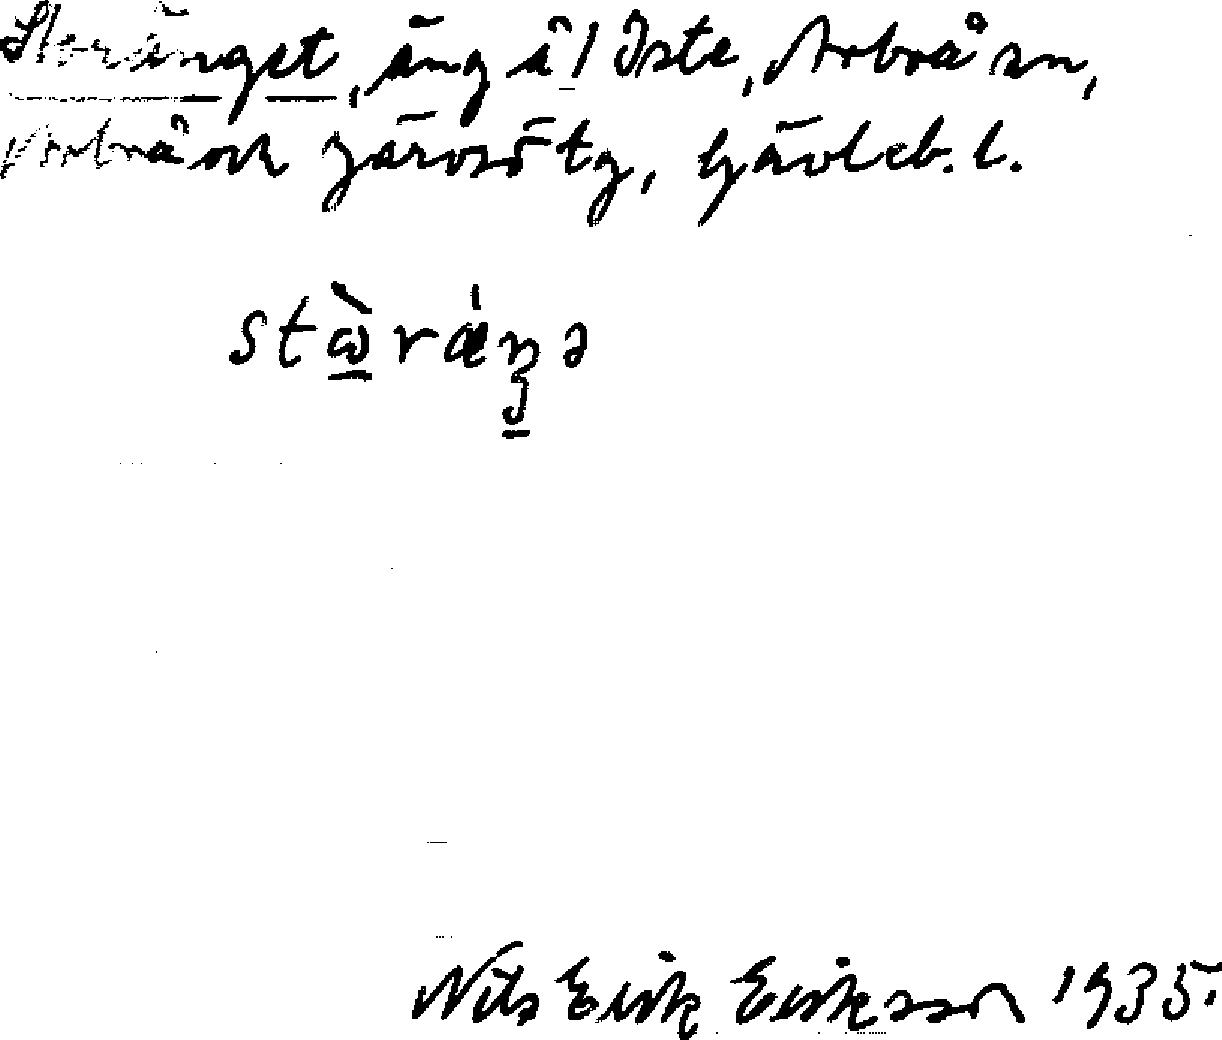 Storänget, äng å 1 Öste, Arbrå sn,
Arbrå och Järvsö tg, Gävleb. l.
stɷ̀ráŋə
Nils Erik Eriksson 1935.